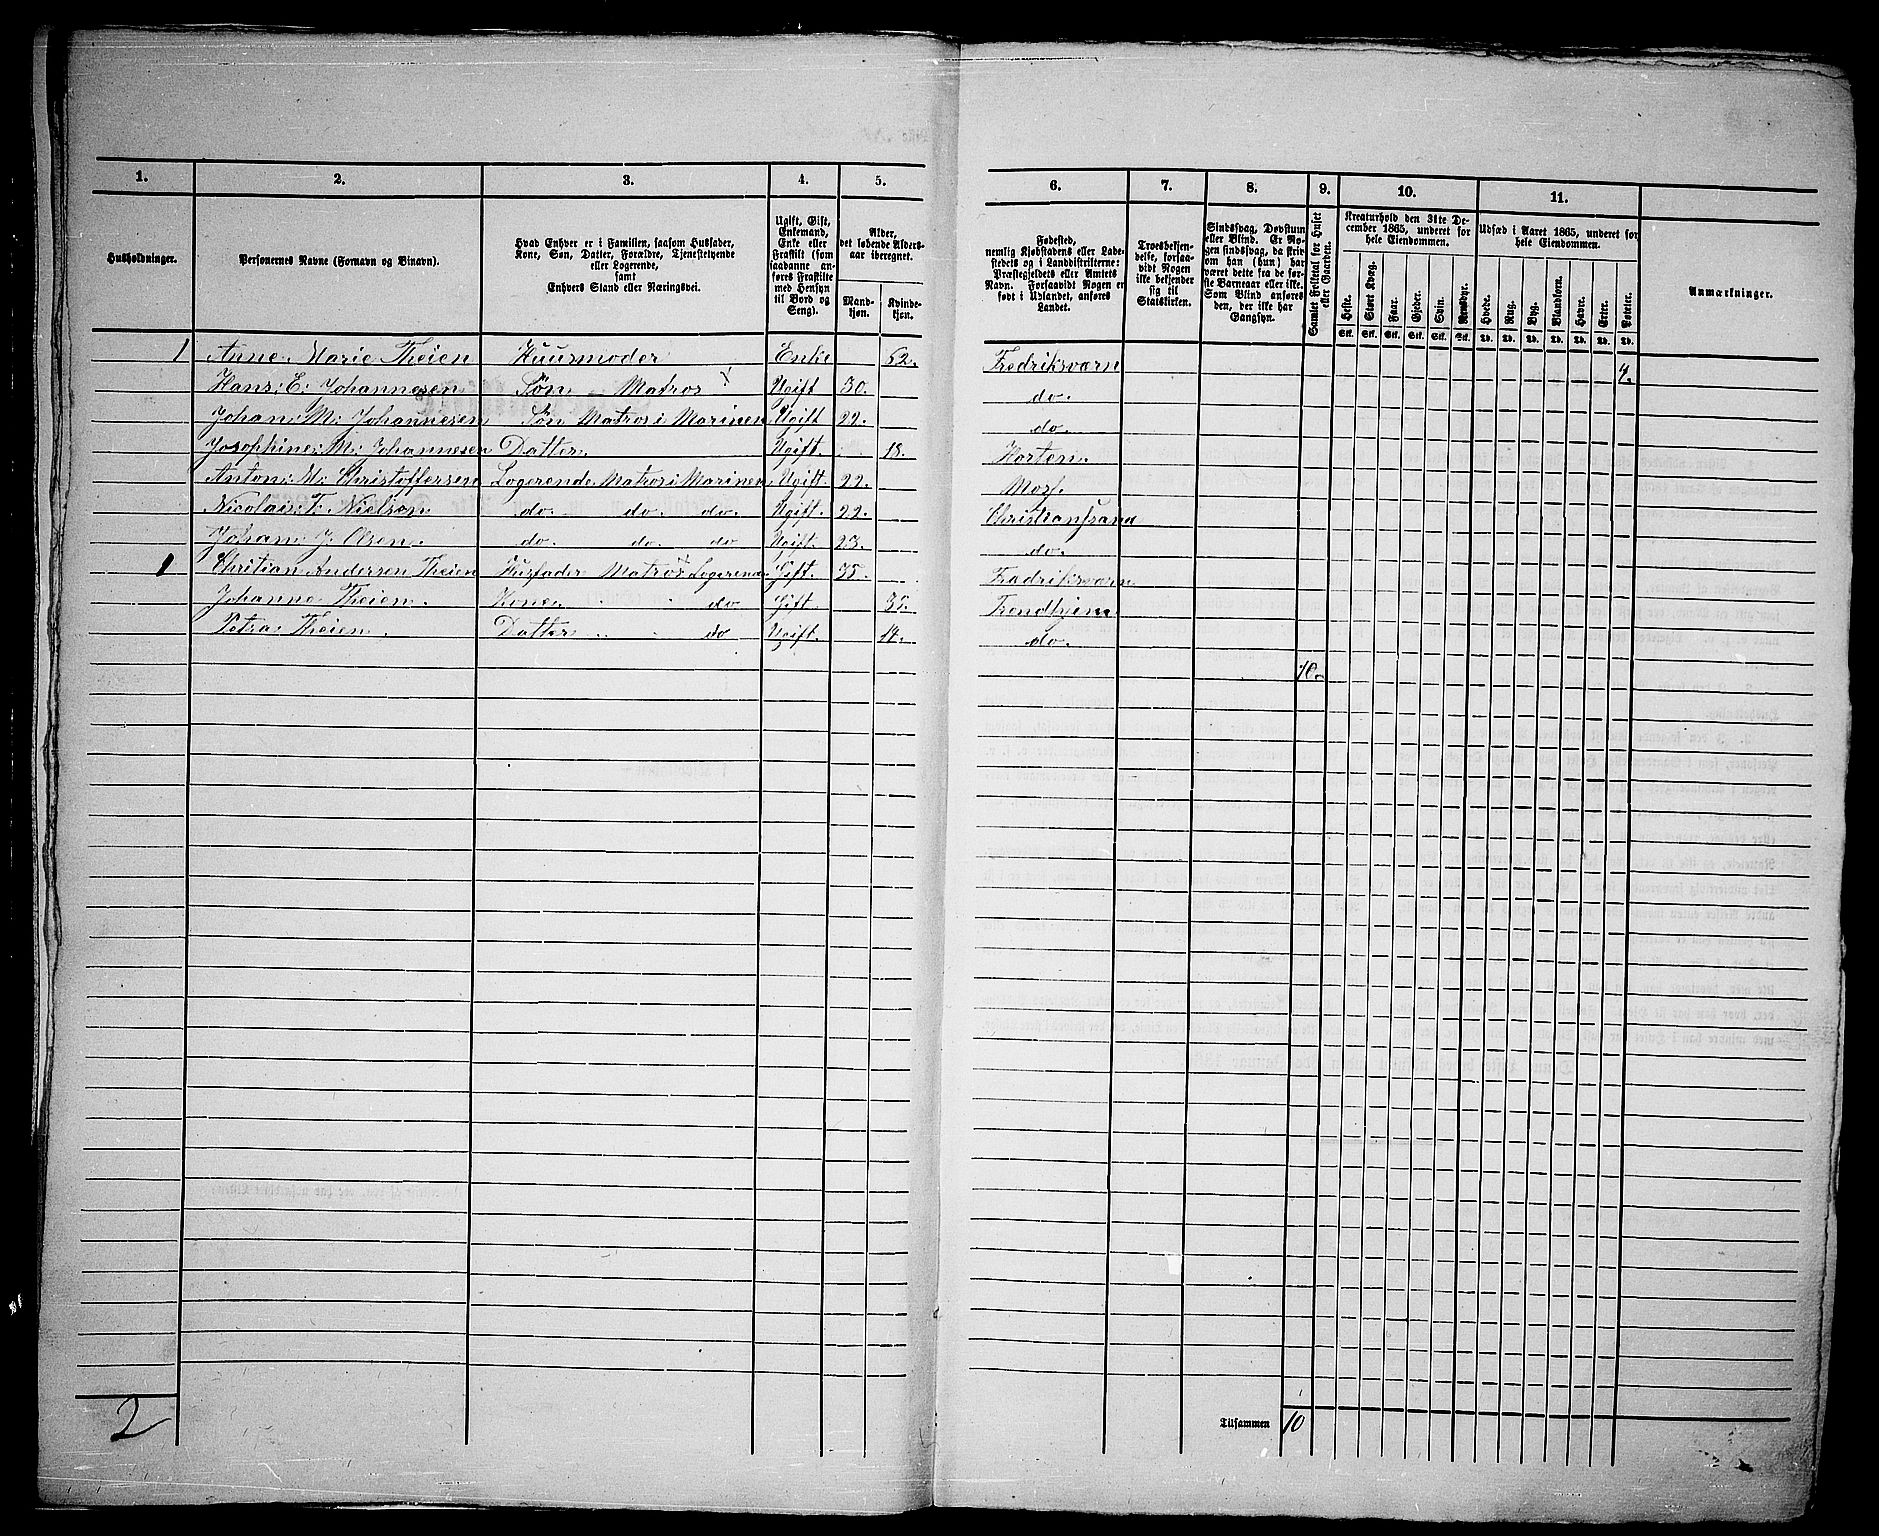 1. 2. 3. 4. 5. 6. 7. 8. 9. 10. 11.
Husholdninger.
Personernes Navne (Fornavn og Binavn).
Hvad Enhver er i Familien, saasom Husfader,
Kone, Søn, Datter, Forældre, Tjenestetyende
eller Logerende,
samt
Enhvers Stand eller Næringsvei.
Ugift, Gift,
Enkemand,
Enke eller
Fraskilt (som
saadanne an-
føres Fraskilte
med Hensyn
til Bord og
Seng).
Alder,
det løbende Alders-
aar iberegnet.
Mand-
kjøn.
Kvinde-
kjøn.
Fødested,
nemlig Kjøbstadens eller Lade-
stedets og i Landdistrikterne:
Præstegjeldets eller Amtets
Navn. Forsaavidt Nogen er
født i Udlandet, anføres
Landet.
Troesbekjen-
delse, forsaa-
vidt Nogen
ikke bekjender
sig til
Statskirken.
Sindssvag, Døvstum
eller Blind. Er No-
gen sindssvag, da skriv
om han (hun) har
været dette fra de før-
ste Barneaar eller ikke.
Som Blind anføres
den, der ikke har
Gangsyn.
Samlet Folketal for Huset
eller Gaarden.
Kreaturhold den 31te De-
cember 1865, underet for
hele Eiendommen.
Heste. Stort Kvæg. Faar. Gjeder. Sviin. Rensdyr.
Stk. Stk. Stk. Stk. Stk. Stk.
Udsæd i Aaret 1865, underet for
hele Eiendommen.
Hvede. Rug. Byg. Blandkorn. Havre. Erter. Poteter.
Td. Td. Td. Td. Td. Td. Td.
Anmærkninger.
1 Anne Marie Theien Huusmoder Enke 52. Fredriksværn 4.
Hans E: Johannesen Søn Matros Ugift 30. do.
Johan M: Johannesen Søn Matros i Marinen Ugift 22. do.
Josephine M: Johannesen Datter Ugift 18. Horten.
Anton M: Christoffersen Logerende Matros i Marinen Ugift 22. Mosf.
Nicolai T. Nielson do do do Ugift 22. Christiansand
Johan J. Olsen do do do Ugift 23. do.
1 Chritian Andersen Theien Husfader Matros Logerende Gift. 35. Fredriksværn
Johanne Theien. Kone do Gift. 35. Trondhjem
Petra Theien Datter do Ugift. 14. do.
10.
2
Tilsammen 10